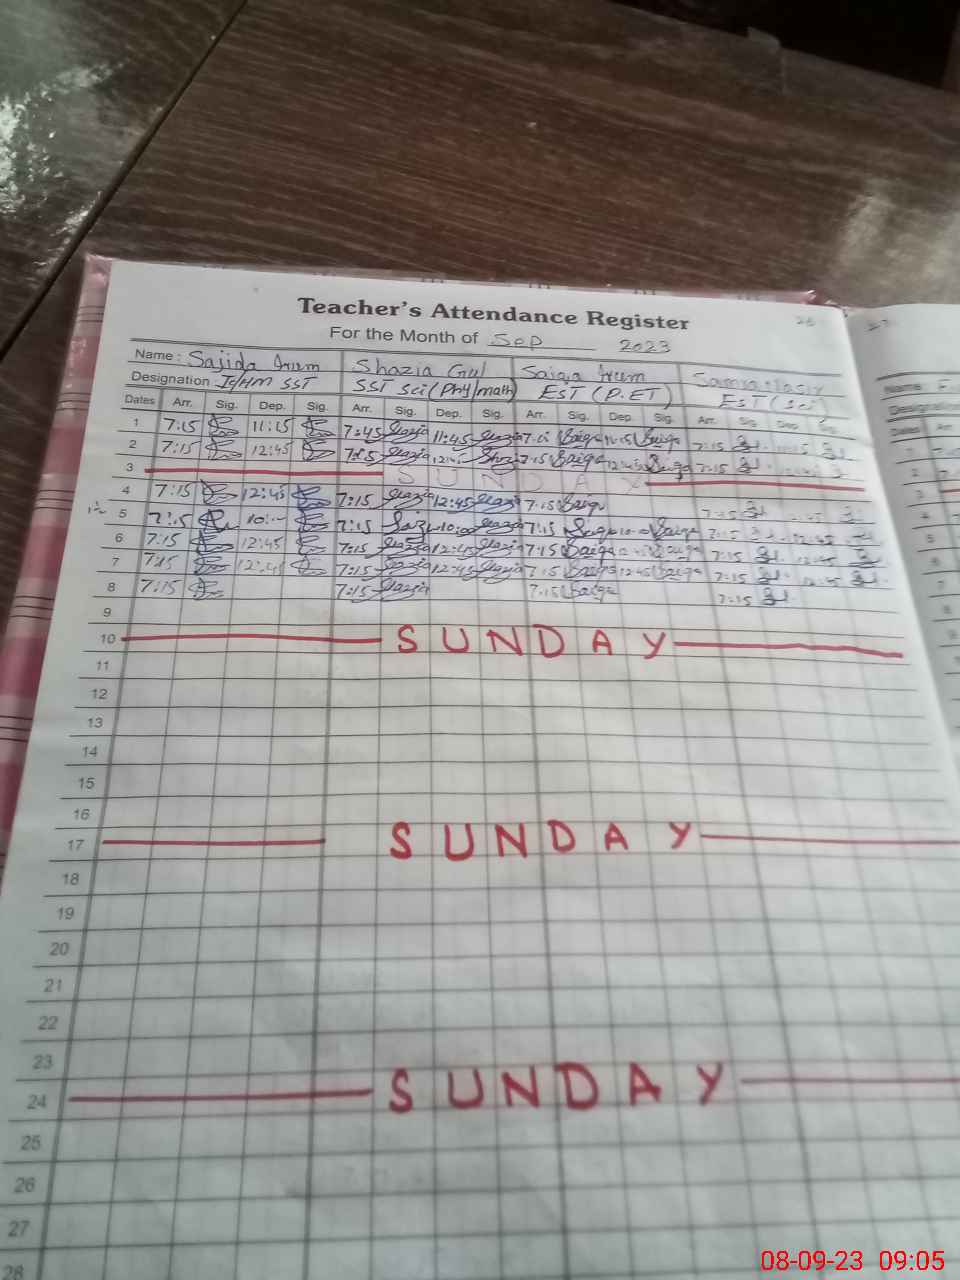 Teacher's Attendance Register
For the Month of Sep 2023
Name: Sajida Irum Shazia Gul Saiqa Irum Samra Nasir
Designation IC/HM SST SST Sci (Phy/math) EST (P.ET) EST (Sci)
Dates Arr. Sig. Dep. Sig. Arr. Sig. Dep. Sig. Arr. Sig. Dep. Sig. Arr. Sig. Dep. Sig.
1 7:15 11:15 7:45 Shazia 11:45 Shazia Saiqa 11:15 Saiqa 7:15 11:15
2 7:15 12:45 7:15 Shazia 12:45 7:15 Saiqa 12:45 Saiqa 7:15 12:45
3 SUNDAY
4 7:15 12:45 7:15 Shazia 12:45 Shazia 7:15 Saiqa 7:15 12:45
5 7:15 7:15 10:00 Shazia 7:15 Saiqa 7:15 12:45
6 7:15 12:45 7:15 Shazia 12:45 Shazia 7:15 Saiqa Saiqa 7:15 12:45
7 7:15 12:45 7:15 Shazia 12:45 Shazia 7:15 Saiqa 12:45 Saiqa 7:15 12:45
8 7:15 7:15 Shazia 7:15 Saiqa 7:15
9
10 SUNDAY
11
12
13
14
15
16
17 SUNDAY
18
19
20
21
22
23
24 SUNDAY
25
26
27
28
08-09-23 09:05